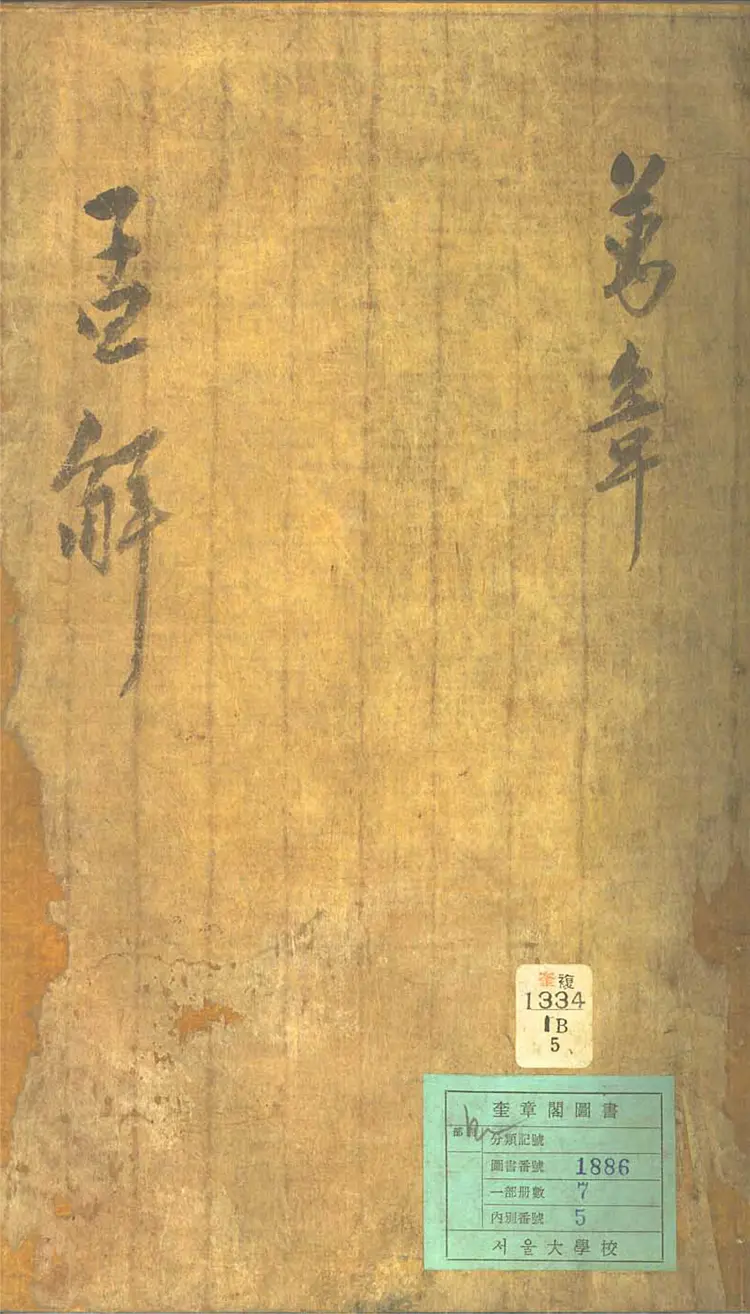 萬章
孟解
奎複
1334
1B
5
奎章閣圖書
部
分類記號
圖書番號 1886
一部册數 7
內別番號 5
서울大學校